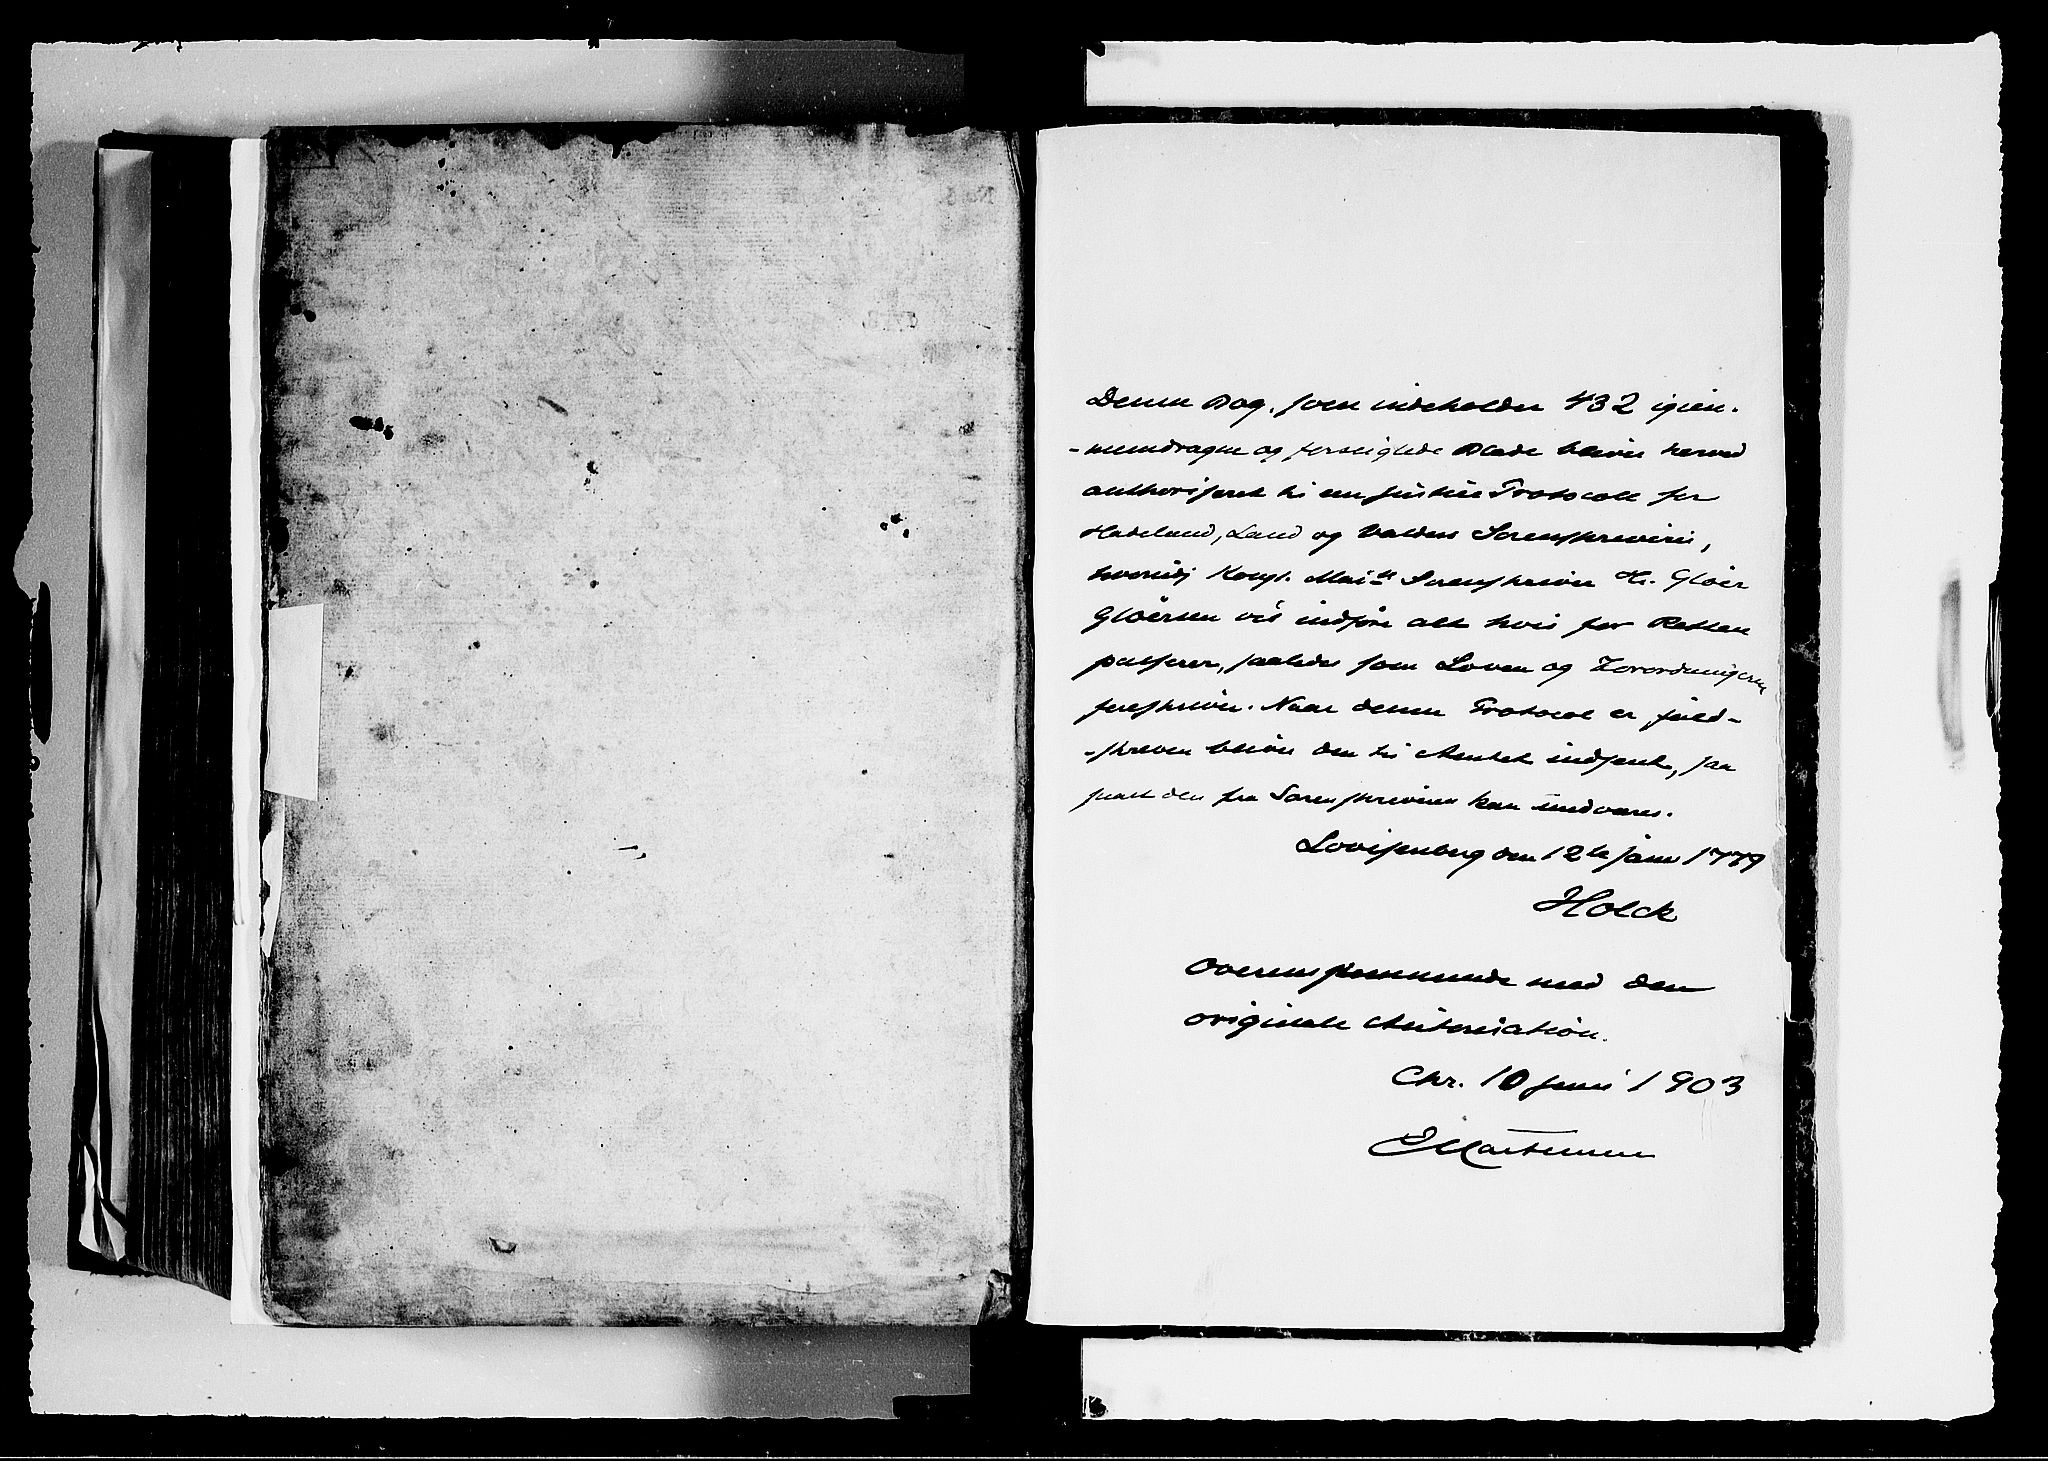 Denne Bog, som indeholder 432 igien-
-nemdragne og forseiglede Blade bliver herved
authoriseret til en Justice Protocoll for
Hadeland, Land og Valders Sorenskriverie,
hvorudj Kongl. Mai.ts Sorenskriver Hr. Gløer
Gløersen vil indføre alt hvis for Retten
passerer, saaledes som Loven og Forordningerne
foreskriver. Naar denne Protocol er fuld-
-skreven bliver den til Amtet indsendt, saa
snart den fra Sorenskriveriet kan undværes.
Lovisenberg den 12te Janr 1779
Holck
Overensstemmende med den
originale Autorisation.
Chr. 10 Juni 1903
E Mortensen